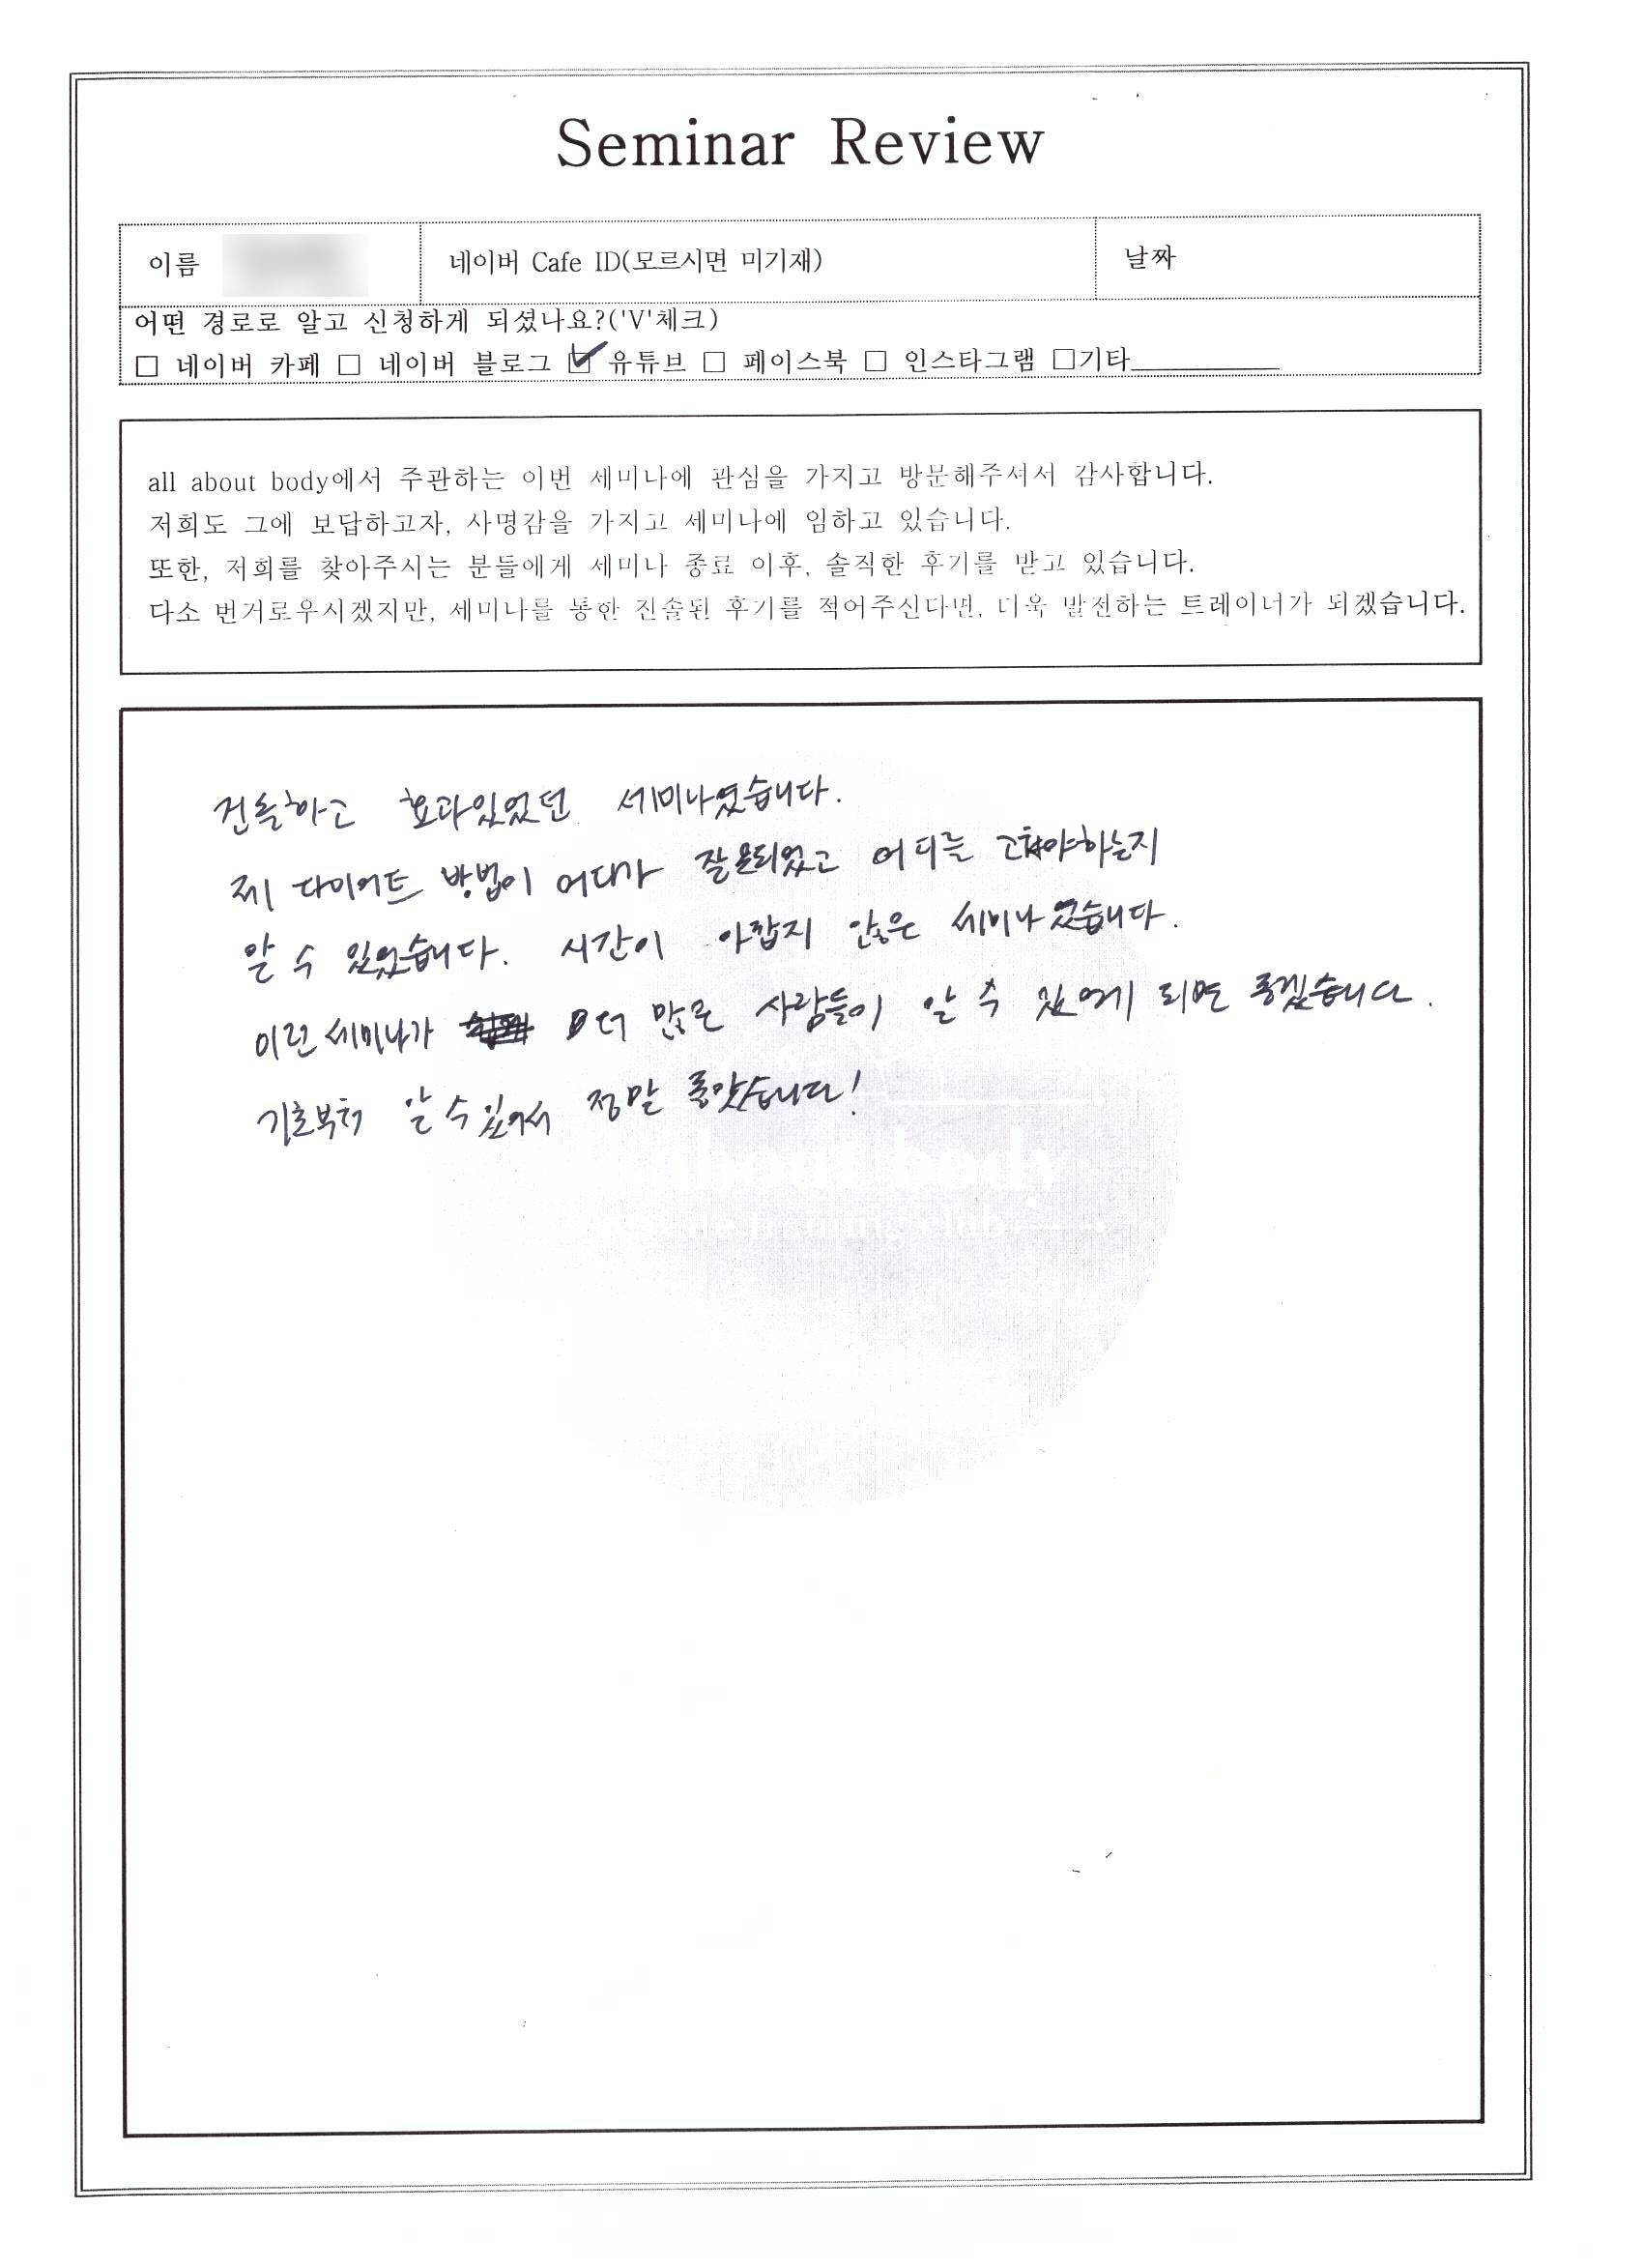 Seminar Review
이름
네이버 Cafe ID(모르시면 미기재)
날짜
어떤 경로로 알고 신청하게 되셨나요?('V'체크)
□ 네이버 카페 □ 네이버 블로그 ☑ 유튜브 □ 페이스북 □ 인스타그램 □기타
all about body에서 주관하는 이번 세미나에 관심을 가지고 방문해주셔서 감사합니다.
저희도 그에 보답하고자, 사명감을 가지고 세미나에 임하고 있습니다.
또한, 저희를 찾아주시는 분들에게 세미나 종료 이후, 솔직한 후기를 받고 있습니다.
다소 번거로우시겠지만, 세미나를 통한 진솔된 후기를 적어주신다면, 더욱 발전하는 트레이너가 되겠습니다.
건돌하고 효과있었던 세미나였습니다.
제 다이어트 방법이 어디가 잘못되었고 어디를 고쳐야하는지
알 수 있었습니다. 시간이 아깝지 않은 세미나였습니다.
이런 세미나가 더 많은 사람들이 알 수 있게 되면 좋겠습니다.
기초부터 알 수 있어서 정말 좋았습니다!
about body
training club